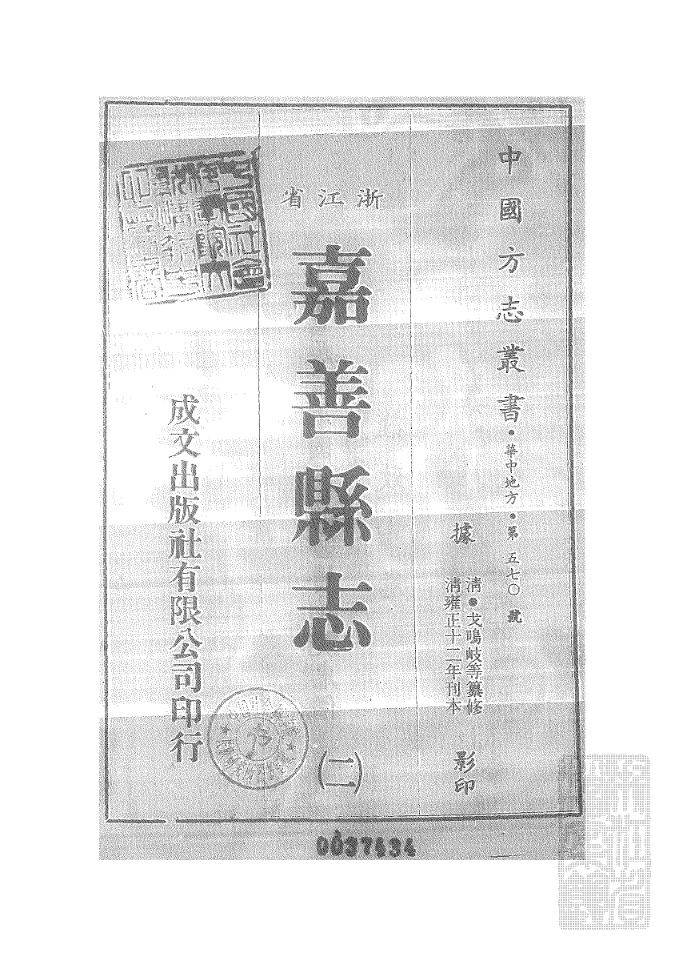 中國方志叢書・華中地方・第五七〇號
據
清・戈鳴岐等纂修
清雍正十二年刊本
影印
浙江省
嘉善縣志
(二)
成文出版社有限公司印行
0037434